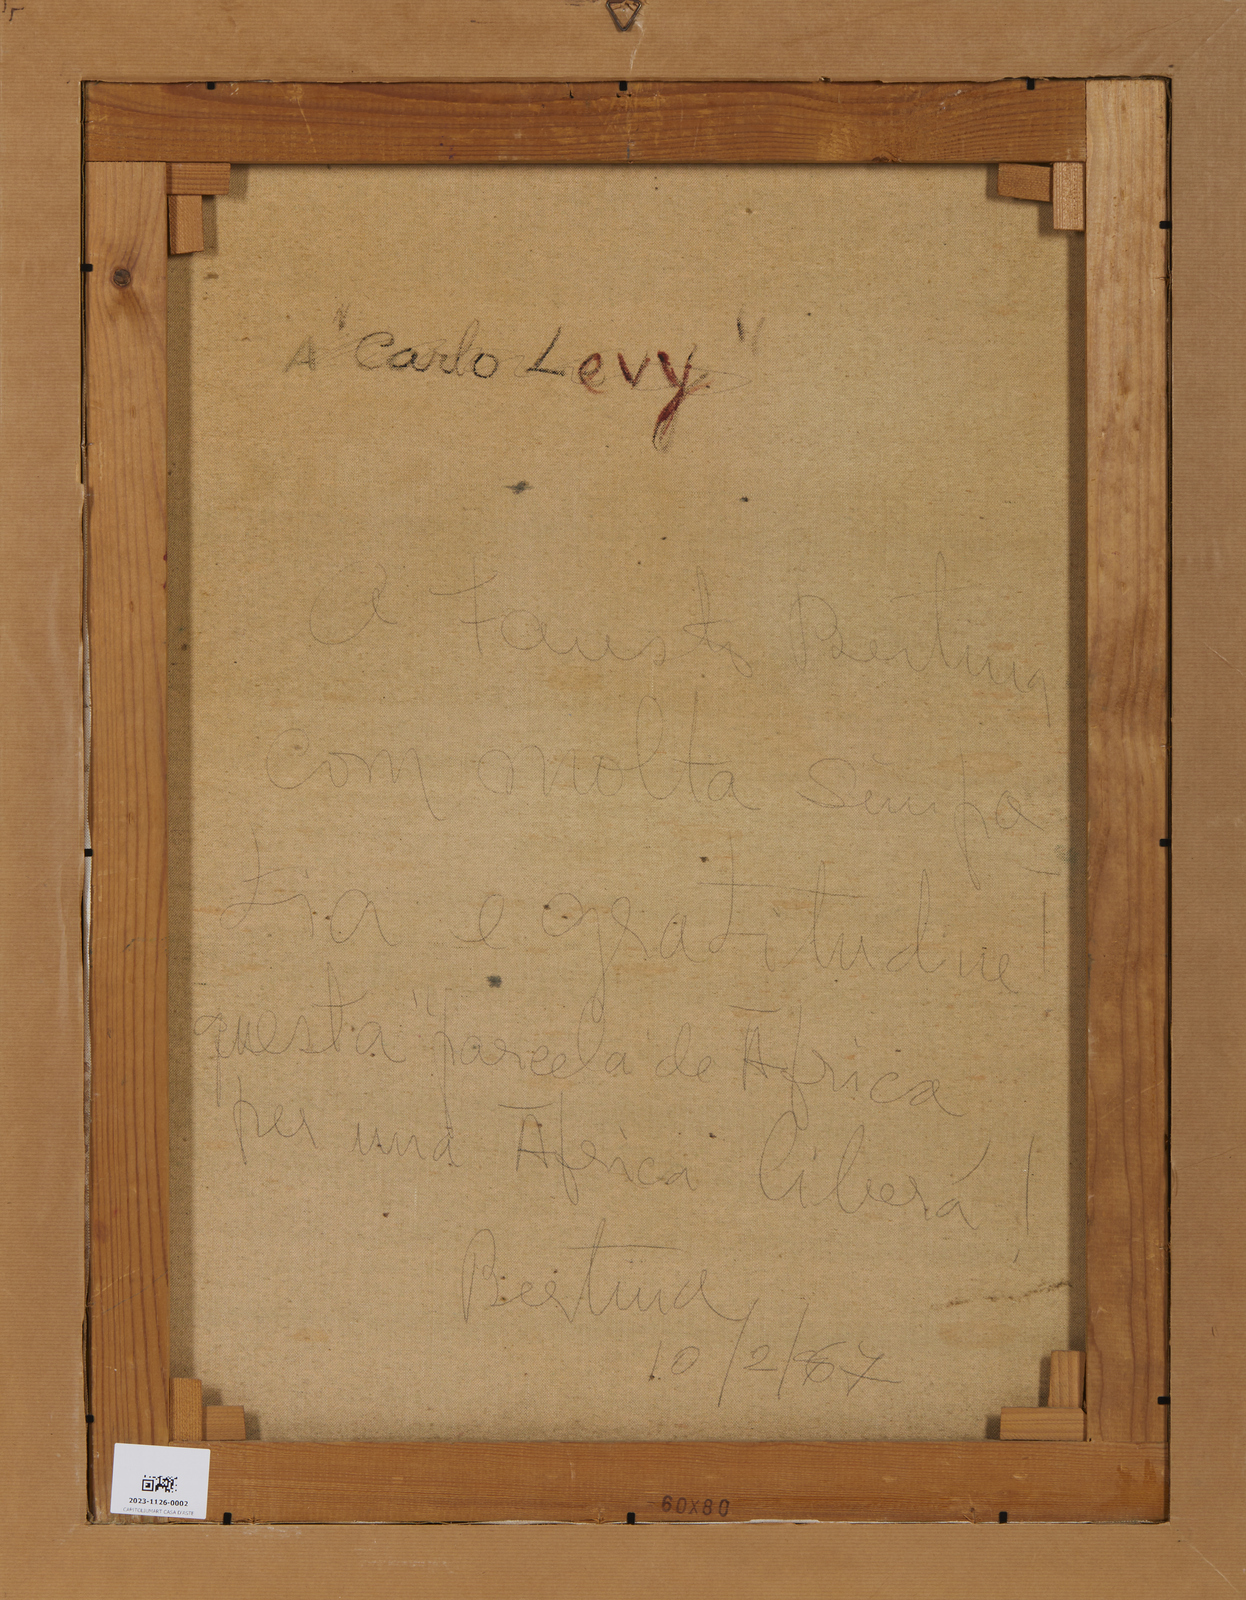 A "Carlo Levy"
A Fausto Bertina
com molta simpa
tia e gratitudine!
questa "parcela de Africa
per una Africa liberá!
Bertina
10/2/67
60x80
2023-1126-0002
CAPITOLIUMART CASA D'ASTE